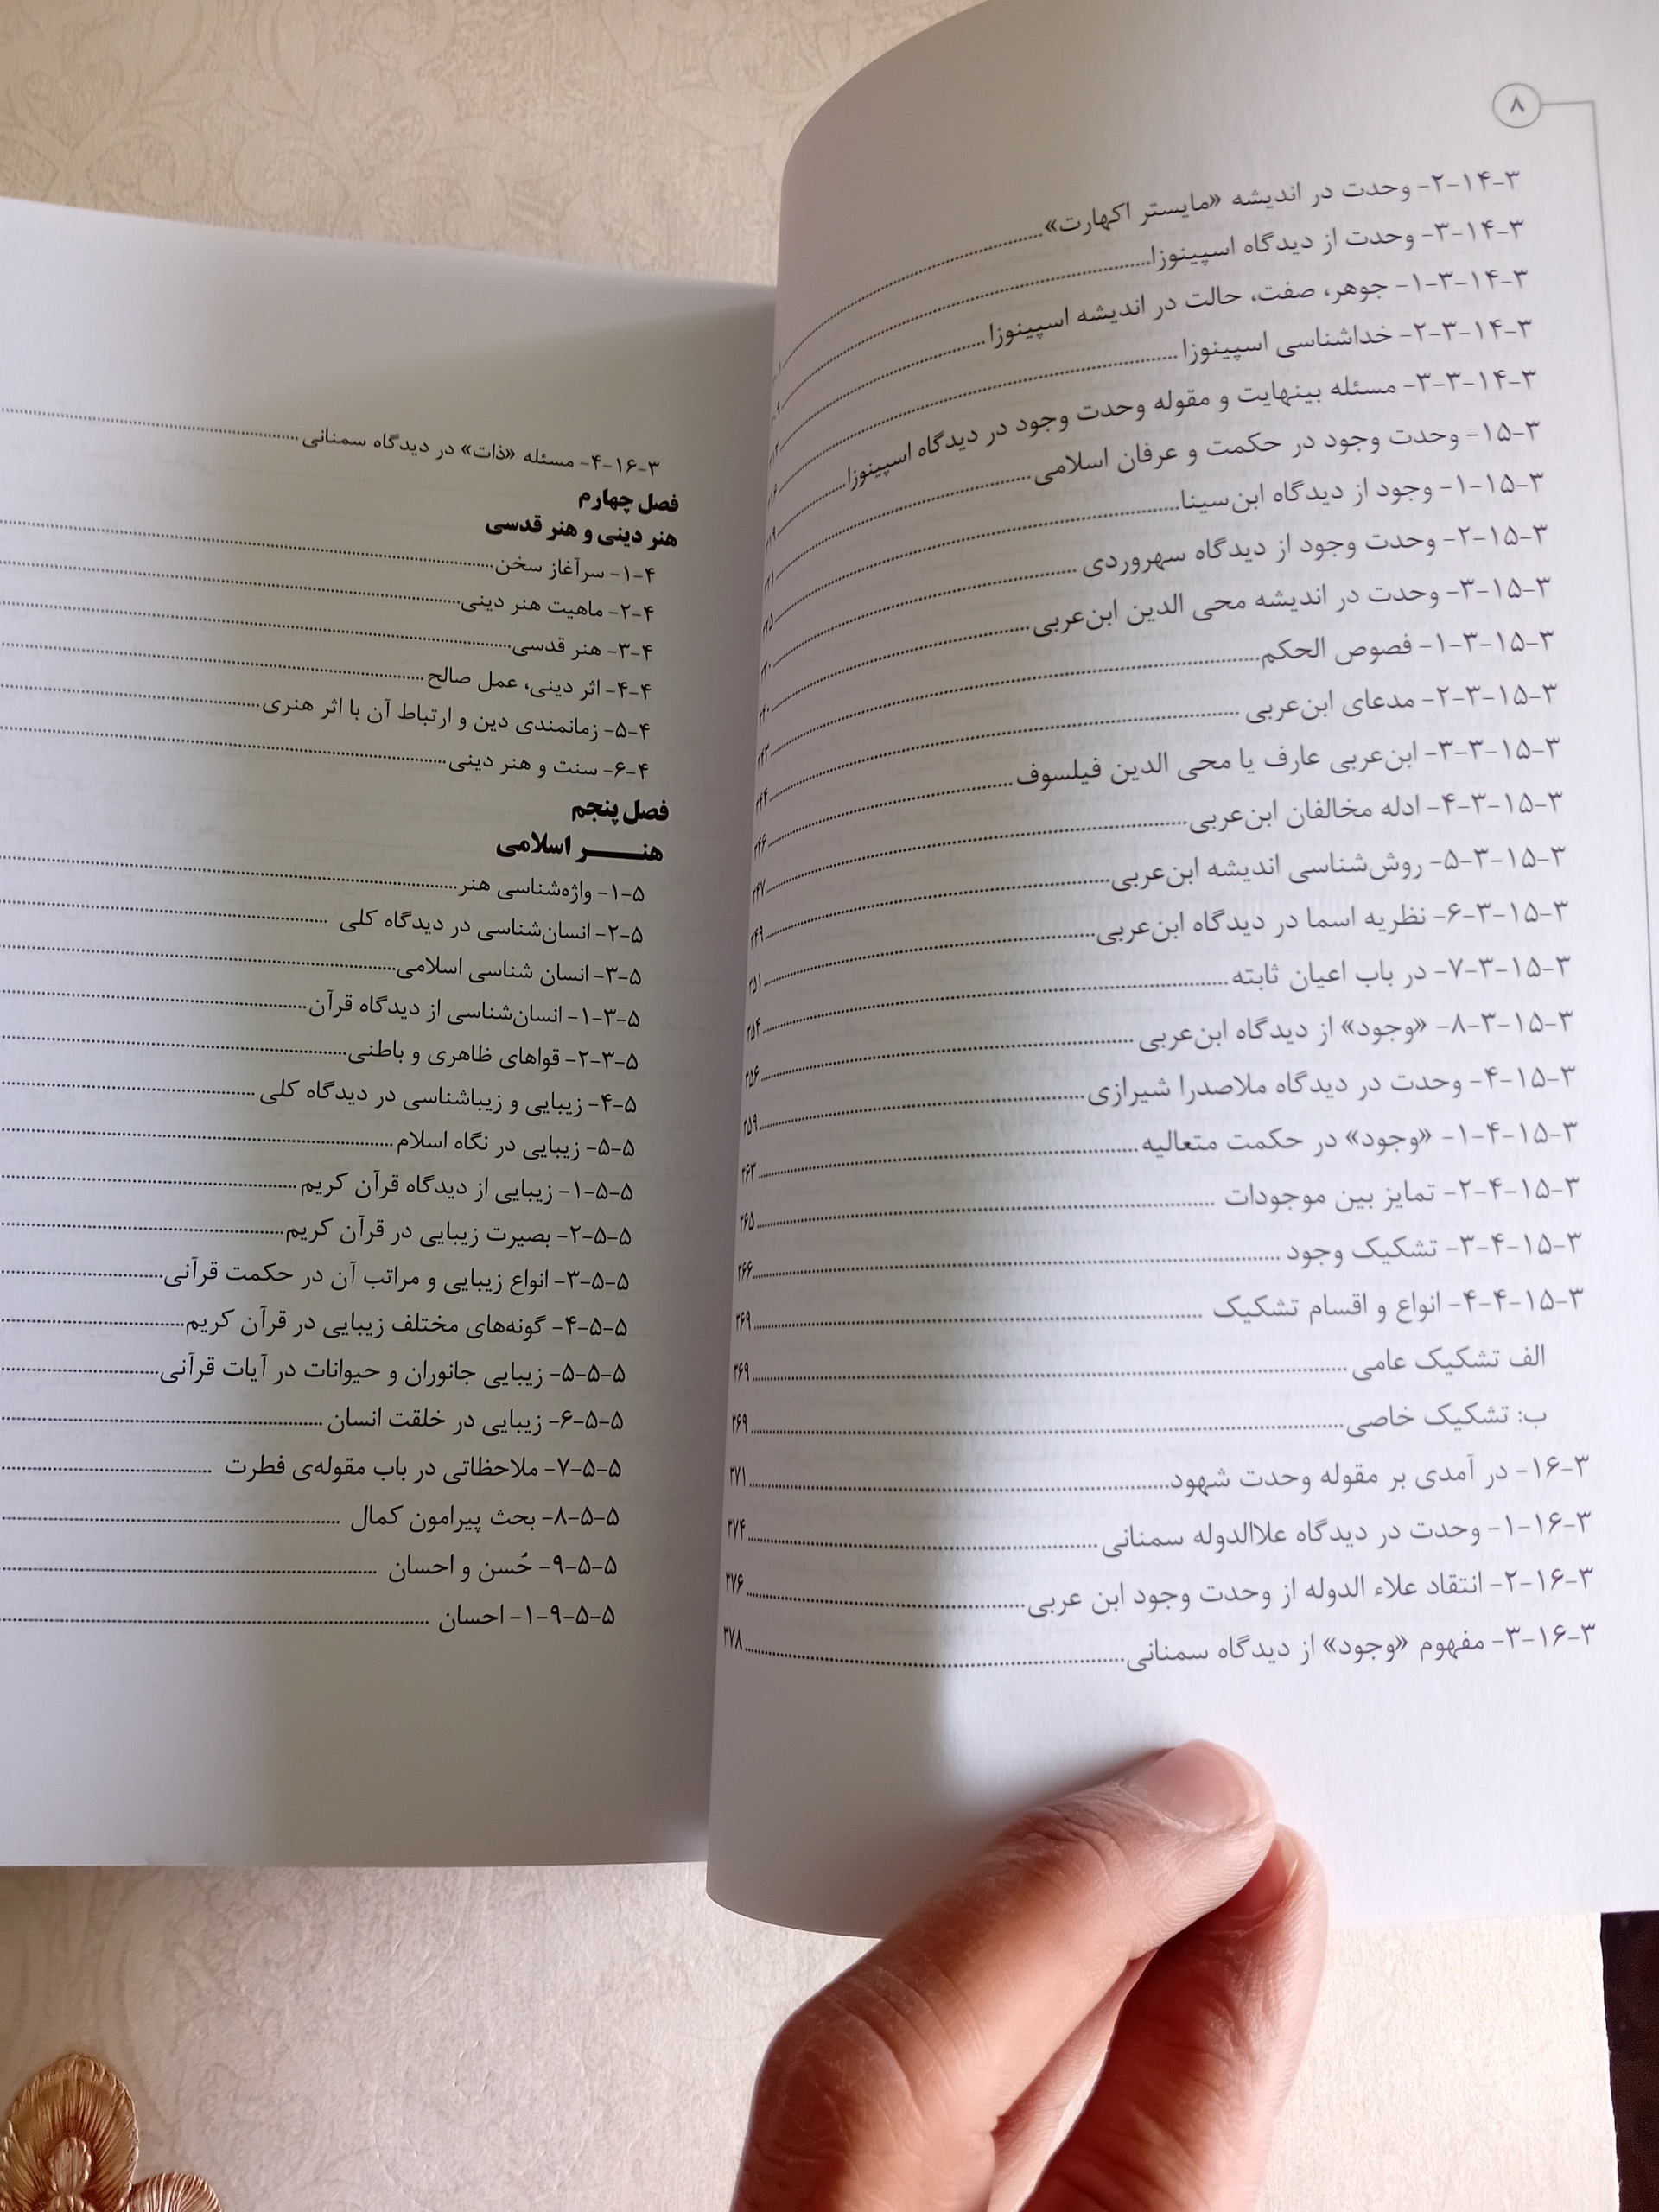 ۸
۳-۱۴-۲- وحدت در اندیشه «مایستر اکهارت»
۳-۱۴-۳- وحدت از دیدگاه اسپینوزا
۳-۱۴-۳-۱- جوهر، صفت، حالت در اندیشه اسپینوزا
۳-۱۴-۳-۲- خداشناسی اسپینوزا
۳-۱۴-۳-۳- مسئله بینهایت و مقوله وحدت وجود در دیدگاه اسپینوزا
۳-۱۵- وحدت وجود در حکمت و عرفان اسلامی
۳-۱۵-۱- وجود از دیدگاه ابن‌سینا
۳-۱۵-۲- وحدت وجود از دیدگاه سهروردی
۳-۱۵-۳- وحدت در اندیشه محی الدین ابن‌عربی
۳-۱۵-۳-۱- فصوص الحکم
۳-۱۵-۳-۲- مدعای ابن‌عربی
۳-۱۵-۳-۳- ابن‌عربی عارف یا محی الدین فیلسوف
۳-۱۵-۳-۴- ادله مخالفان ابن‌عربی
۳-۱۵-۳-۵- روش‌شناسی اندیشه ابن‌عربی
۳-۱۵-۳-۶- نظریه اسما در دیدگاه ابن‌عربی
۳-۱۵-۳-۷- در باب اعیان ثابته
۳-۱۵-۳-۸- «وجود» از دیدگاه ابن‌عربی
۳-۱۵-۴- وحدت در دیدگاه ملاصدرا شیرازی
۳-۱۵-۴-۱- «وجود» در حکمت متعالیه
۳-۱۵-۴-۲- تمایز بین موجودات
۳-۱۵-۴-۳- تشکیک وجود
۳-۱۵-۴-۴- انواع و اقسام تشکیک ۲۶۹
الف تشکیک عامی ۲۶۹
ب: تشکیک خاصی ۲۶۹
۳-۱۶- در آمدی بر مقوله وحدت شهود ۲۷۱
۳-۱۶-۱- وحدت در دیدگاه علاالدوله سمنانی ۲۷۴
۳-۱۶-۲- انتقاد علاء الدوله از وحدت وجود ابن عربی ۲۷۶
۳-۱۶-۳- مفهوم «وجود» از دیدگاه سمنانی ۲۷۸
۳-۱۶-۴- مسئله «ذات» در دیدگاه سمنانی
فصل چهارم
هنر دینی و هنر قدسی
۴-۱- سرآغاز سخن
۴-۲- ماهیت هنر دینی
۴-۳- هنر قدسی
۴-۴- اثر دینی، عمل صالح
۴-۵- زمانمندی دین و ارتباط آن با اثر هنری
۴-۶- سنت و هنر دینی
فصل پنجم
هنــــــر اسلامی
۵-۱- واژه‌شناسی هنر
۵-۲- انسان‌شناسی در دیدگاه کلی
۵-۳- انسان شناسی اسلامی
۵-۳-۱- انسان‌شناسی از دیدگاه قرآن
۵-۳-۲- قواهای ظاهری و باطنی
۵-۴- زیبایی و زیباشناسی در دیدگاه کلی
۵-۵- زیبایی در نگاه اسلام
۵-۵-۱- زیبایی از دیدگاه قرآن کریم
۵-۵-۲- بصیرت زیبایی در قرآن کریم
۵-۵-۳- انواع زیبایی و مراتب آن در حکمت قرآنی
۵-۵-۴- گونه‌های مختلف زیبایی در قرآن کریم
۵-۵-۵- زیبایی جانوران و حیوانات در آیات قرآنی
۵-۵-۶- زیبایی در خلقت انسان
۵-۵-۷- ملاحظاتی در باب مقوله‌ی فطرت
۵-۵-۸- بحث پیرامون کمال
۵-۵-۹- حُسن و احسان
۵-۵-۹-۱- احسان